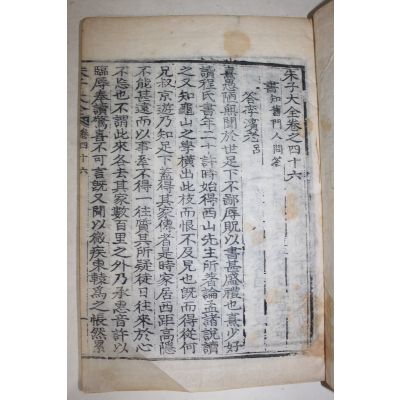 朱子大全卷之四十六
書 知舊門人問答
答李濱老 呂
熹愚陋無聞於世足下不鄙辱貺以書甚盛禮也熹少好
讀程氏書年二十許時始得西山先生所著論孟諸說讀
之又知龜山之學橫出此枝而恨不及見也旣而得從何
兄叔京遊乃知足下蓋得其家傳者是時家居西距高隱
不能甚遠而以事不得一往質其所疑徒日往來於心
不忘也不謂此來各去其家數百里之外乃承惠音許以
臨辱奉讀驚喜不可言旣又聞以微疾東轅爲之悵然累
朱子大全 卷四十六